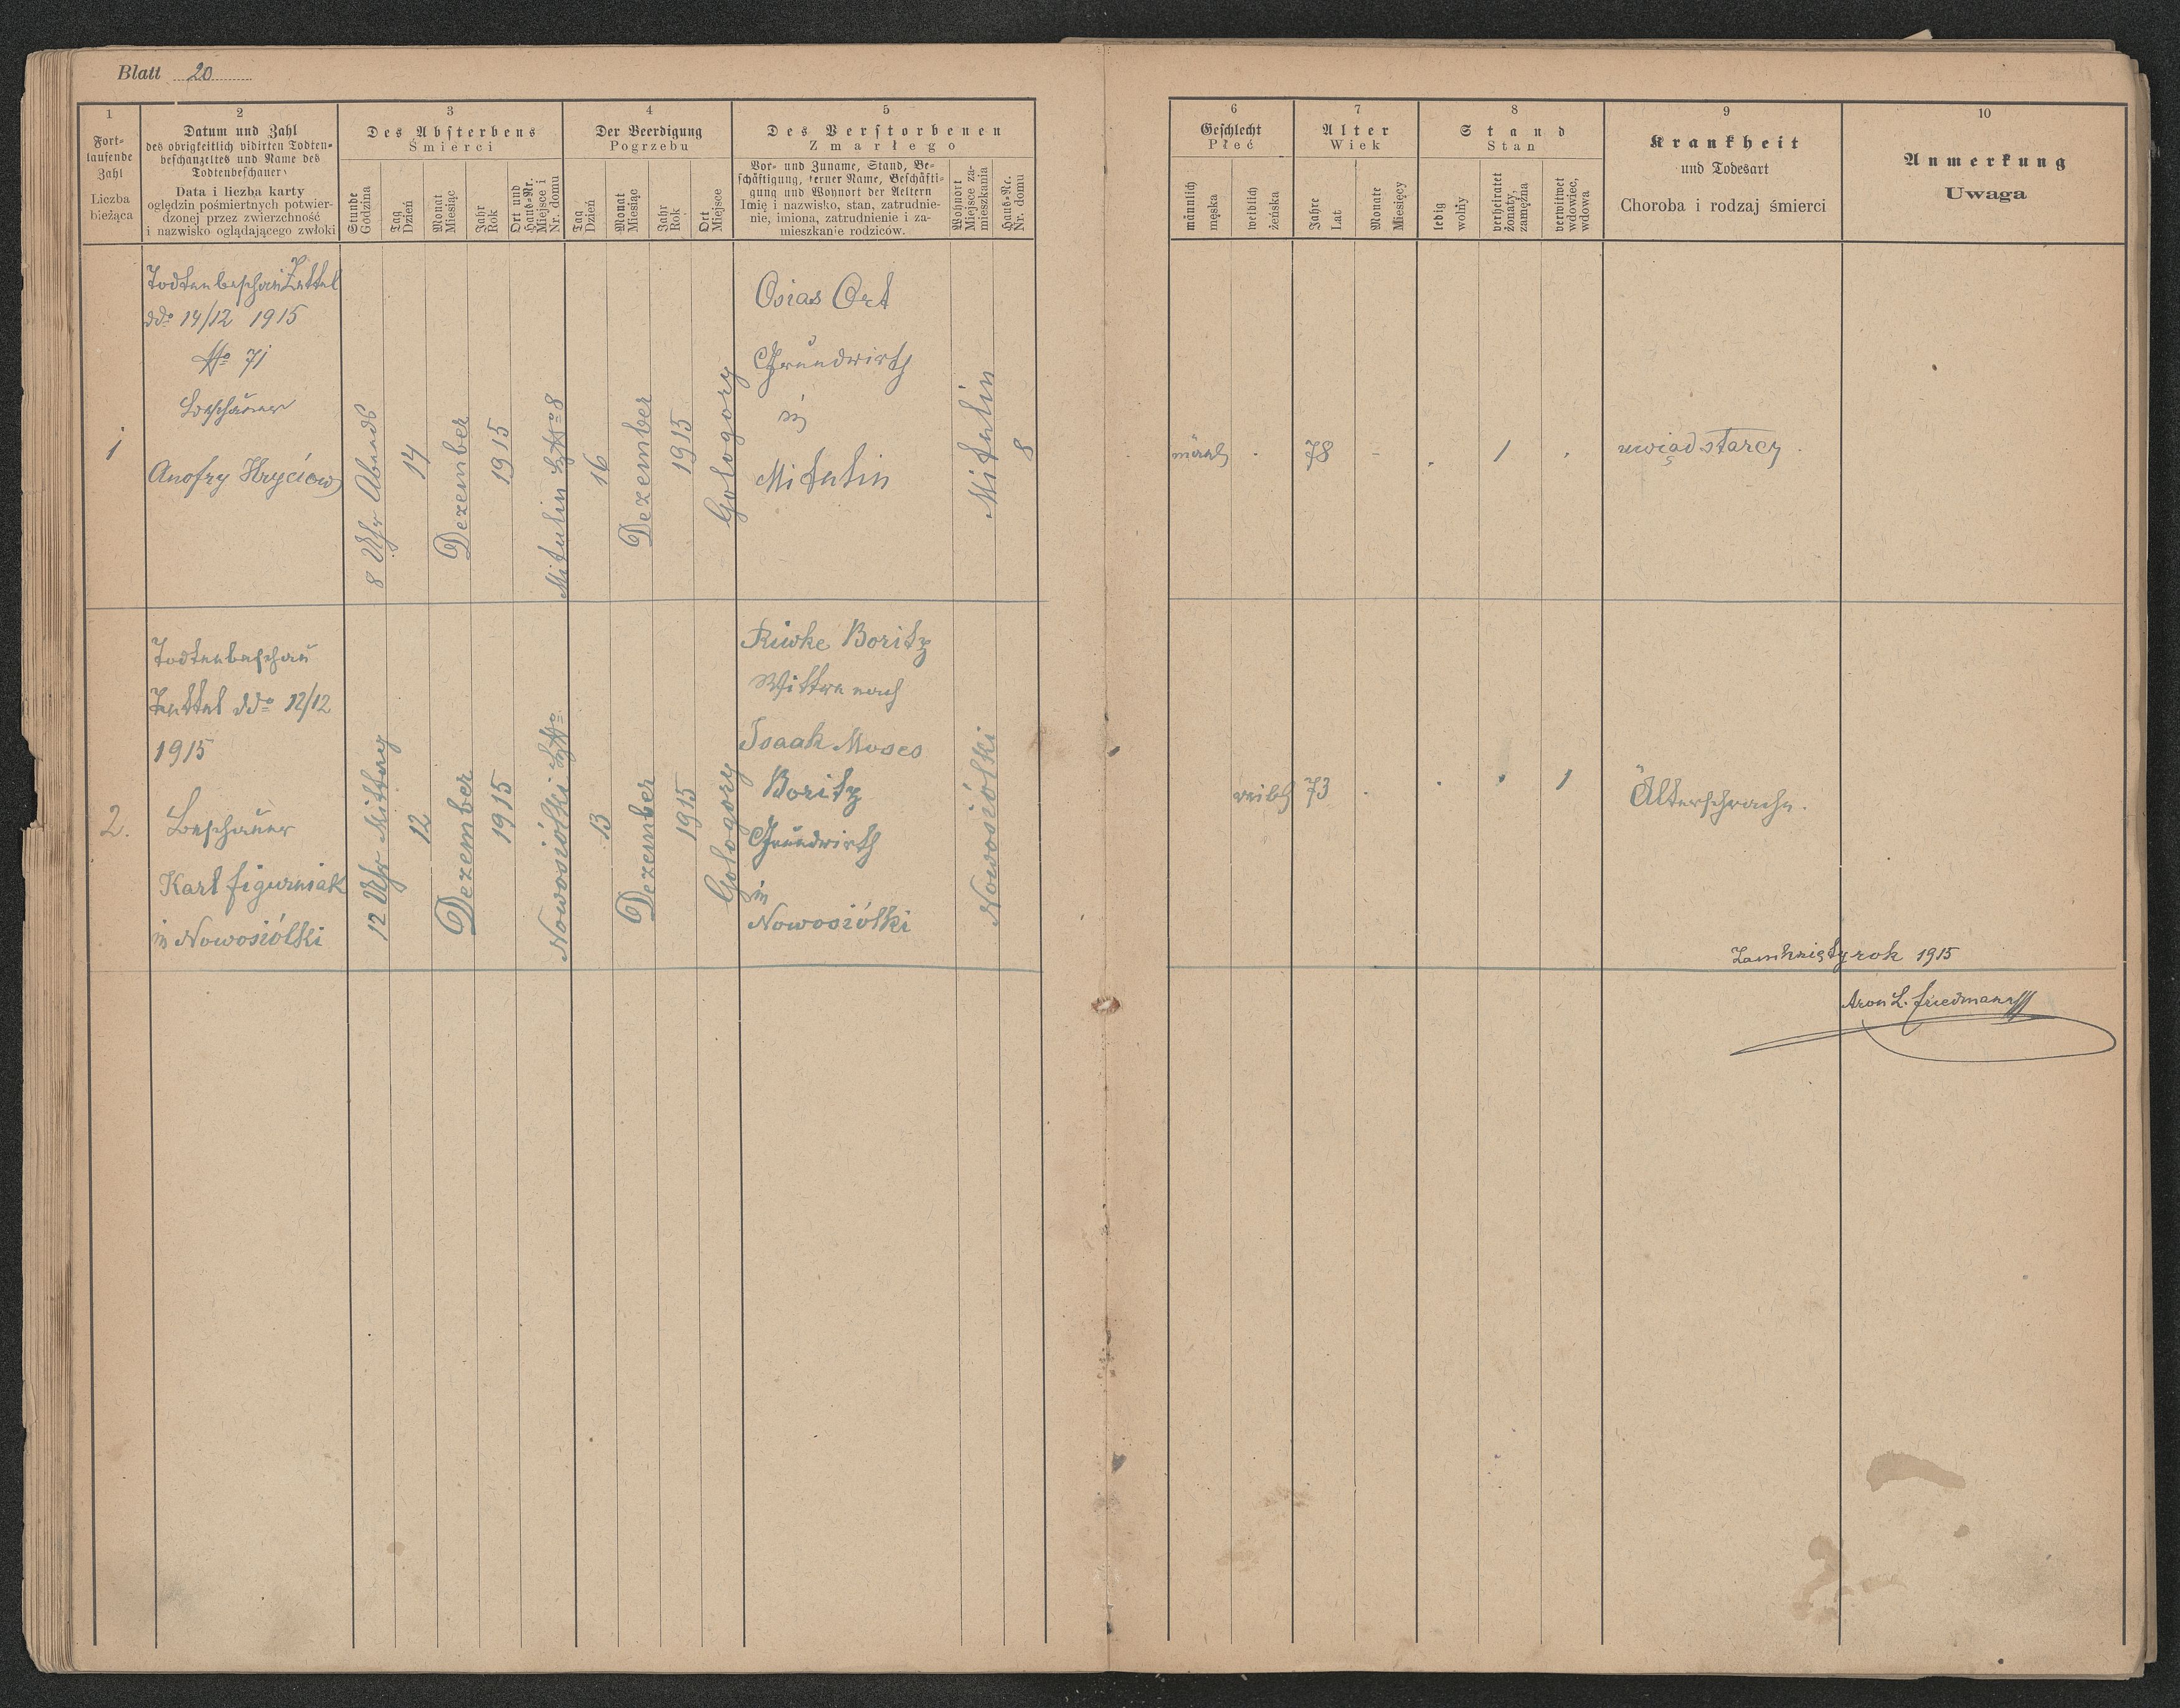 Blatt 20
1
Fort-
laufende
Zahl
Liczba
bieżąca
2
Datum und Zahl
des obrigkeitlich vidirten Todten-
beschauzeltes und Name des
Todtenbeschauers
Data i liczba karty
oględzin pośmiertnych potwier-
dzonej przez zwierzchność
i nazwisko oglądającego zwłoki
3
Des Absterbens
Śmierci
Stunde
Godzina
Tag
Dzień
Monat
Miesiąc
Jahr
Rok
Ort und
Haus-Nr.
Miejsce i
Nr. domu
4
Der Beerdigung
Pogrzebu
Tag
Dzień
Monat
Miesiąc
Jahr
Rok
Ort
Miejsce
5
Des Verstorbenen
Zmarłego
Vor- und Zuname, Stand, Be-
schäftigung, ferner Name, Beschäfti-
gung und Wohnort der Aeltern
Imię i nazwisko, stan, zatrudnie-
nie, imiona, zatrudnienie i za-
mieszkanie rodziców.
Wohnort
Miejsce za-
mieszkania
Haus-Nr.
Nr. domu
6
Geschlecht
Płeć
männlich
męska
weiblich
żeńska
7
Alter
Wiek
Jahre
Lat
Monate
Miesięcy
8
Stand
Stan
ledig
wolny
verheiratet
żonaty,
zamężna
verwitwet
wdowiec,
wdowa
9
Krankheit
und Todesart
Choroba i rodzaj śmierci
10
Anmerkung
Uwaga
1
Todtenbeschau Zettel
ddo 14/12 1915
No 71
Beschauer
Anofry Hryciow
8 Uhr Abends
14
Dezember
1915
Mitulin No 8
16
Dezember
1915
Gołogory
Osias Ort
Grundwirth
in
Mitulin
Mitulin
8
männl
78
-
1
uwiąd starczy
2.
Todtenbeschau
Zettel ddo 12/12
1915
Beschauer
Karl Figurniak
in Nowosiółki
12 Uhr Mittag
12
Dezember
1915
Nowosiółki No
13
Dezember
1915
Gołogory
Riwke Boritz
Wittwe nach
Isaak Moses
Boritz
Grundwirth
in
Nowosiółki
Nowosiółki
weibl
73
1
Alterschwäche.
Zamknięty rok 1915
Aron L. Friedmann